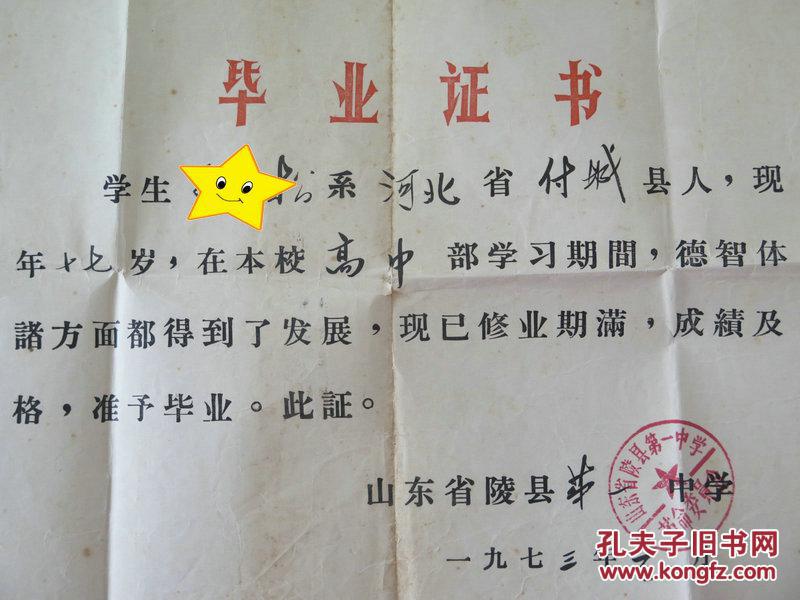 毕业证书
学生 系河北省付城县人，现
年十七岁，在本校高中部学习期間，德智体
諸方面都得到了发展，现已修业期滿，成績及
格，准予毕业。此証。
山东省陵县第一中学
山东省陵县第一中学
革命委員会
一九七三年 月
孔夫子旧书网
www.kongfz.com